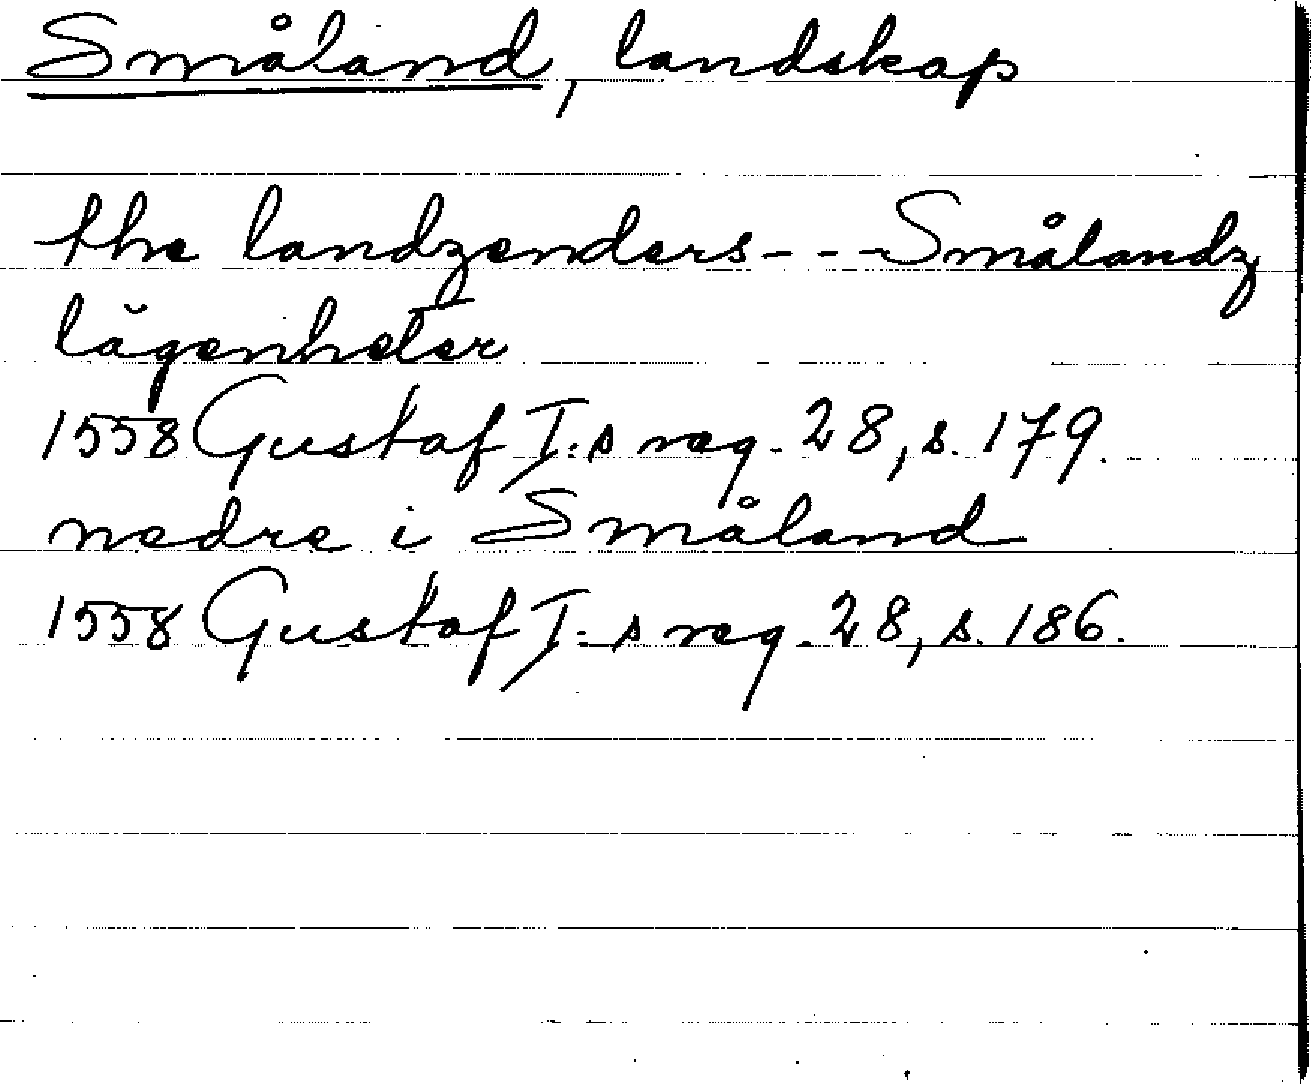 Småland, landskap
the landzenders - - - Smålandz
lägenheter
1558 Gustaf I:s reg. 28, s. 179.
nedre i Småland
1558 Gustaf I:s reg. 28, s. 186.